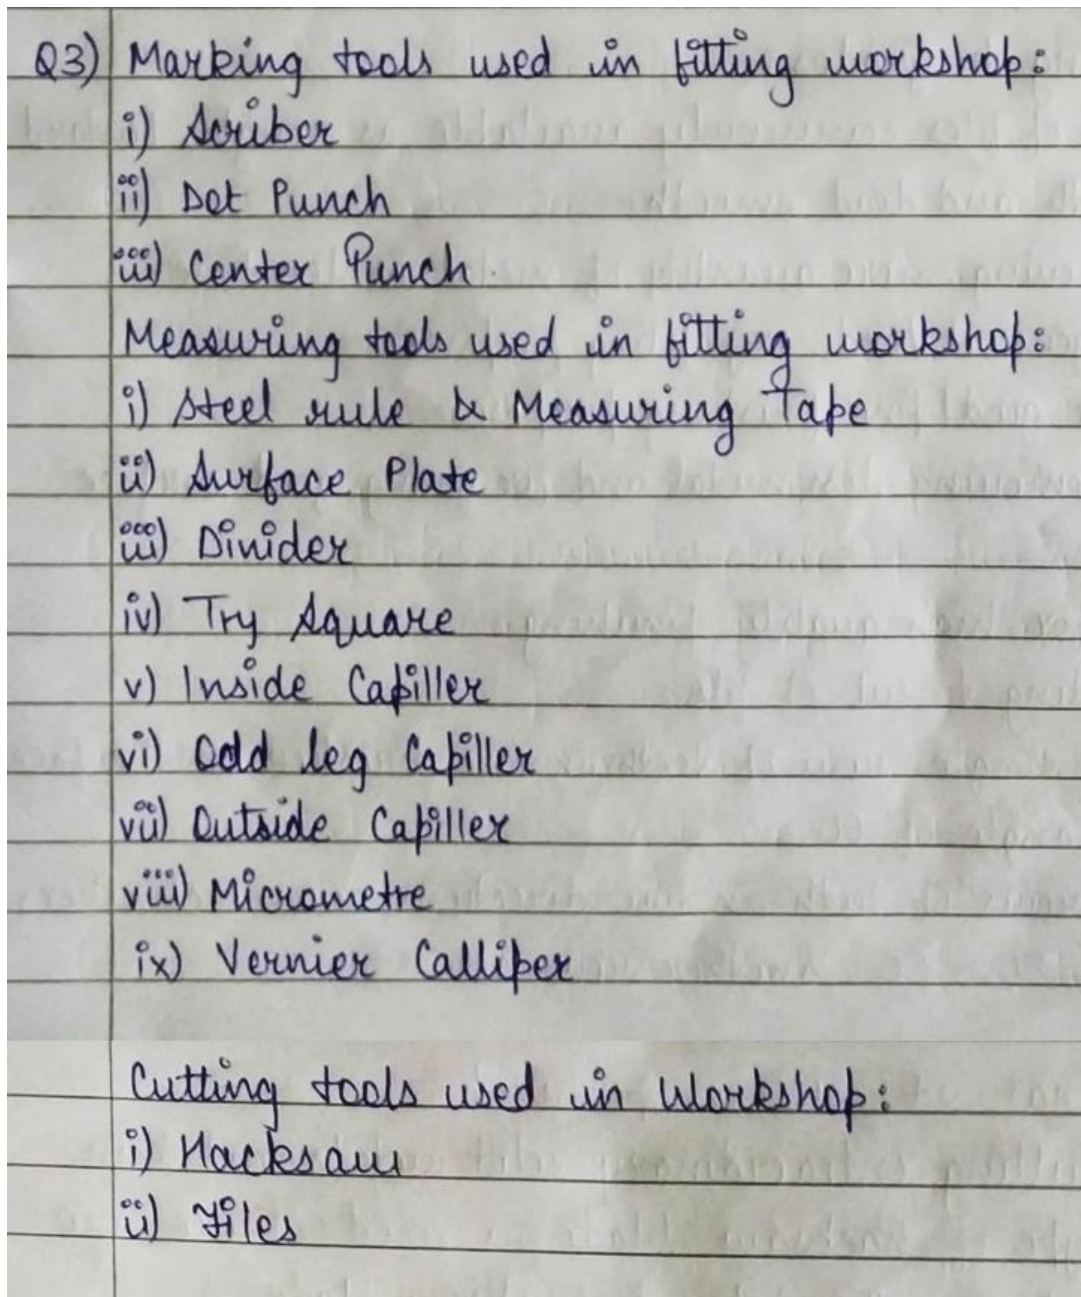 Q3) Marking tools used in fitting workshop:
i) Scriber
ii) Dot Punch
iii) Center Punch
Measuring tools used in fitting workshop:
i) Steel rule & Measuring Tape
ii) Surface Plate
iii) Divider
iv) Try Square
v) Inside Capiller
vi) Odd leg Capiller
vii) Outside Capiller
viii) Micrometre
ix) Vernier Calliper
Cutting tools used in Workshop:
i) Hacksaw
ii) Files